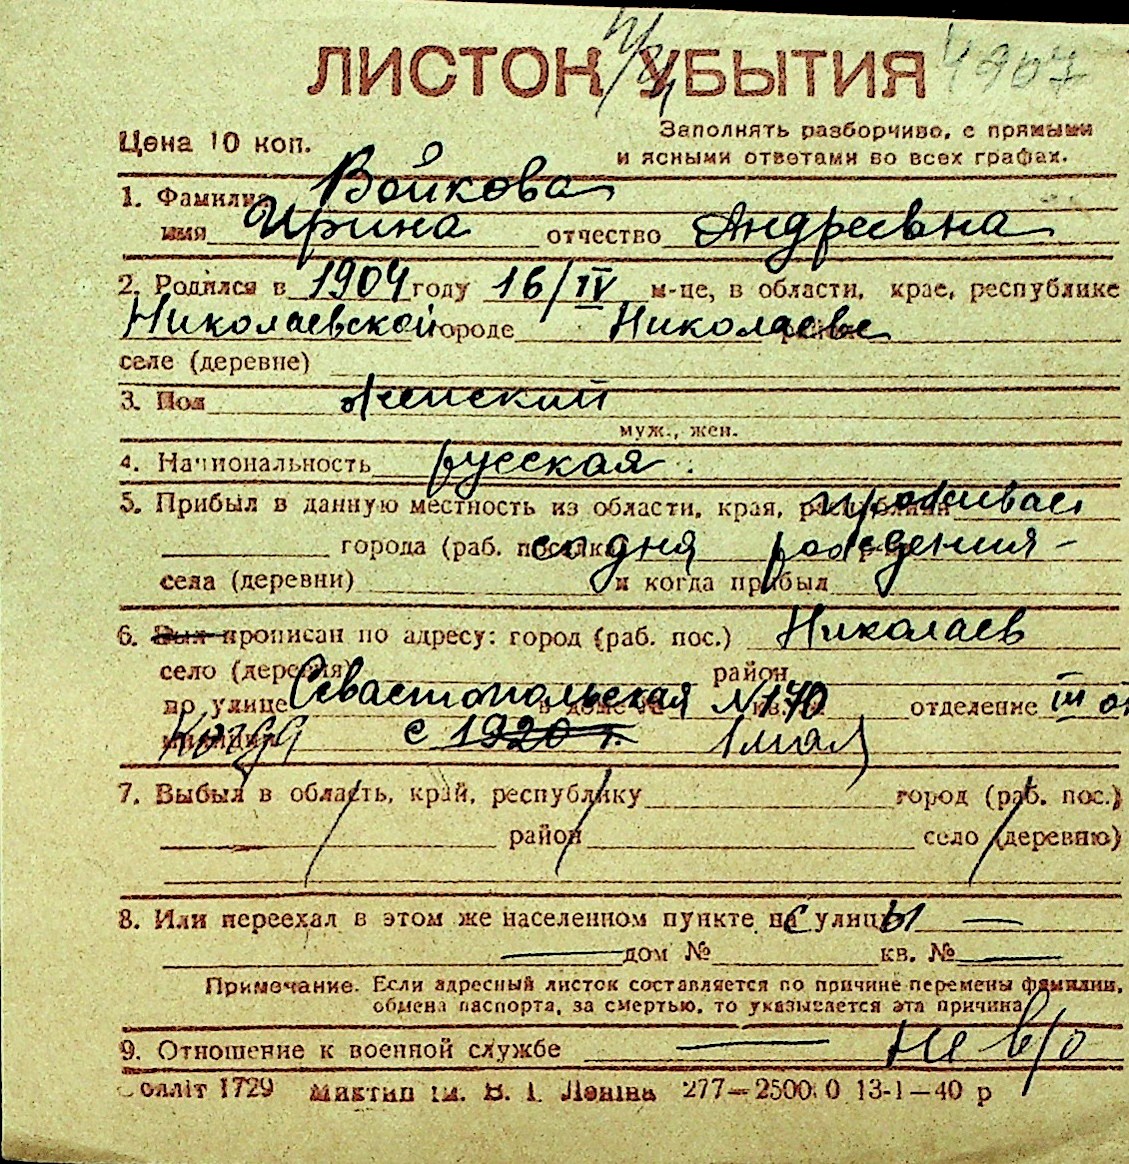 ЛИСТОК УБЫТИЯ 4907
Цена 10 коп.
Заполнять разборчиво, с прямыми
и ясными ответами во всех графах.
1. Фамилия Войкова
имя Ирина отчество Андреевна
2. Родился в 1904 году 16/IV м-це, в области, крае, республике
Николаевской городе Николаеве
селе (деревне)
3. Пол женский
муж., жен.
4. Национальность русская
5. Прибыл в данную местность из области, края, республики проживает
города (раб. поселка) со дня рождения -
села (деревни) и когда прибыл
6. Был прописан по адресу: город (раб. пос.) Николаев
село (деревня) район
по улице Севастопольская в доме № №170 кв. № отделение III от
милиции Когда с 1920 г. 1 мая
7. Выбыл в область, край, республику город (раб. пос.)
район село (деревню)
8. Или переехал в этом же населенном пункте на с улицы —
— дом № кв. № —
Примечание. Если адресный листок составляется по причине перемены фамилии,
обмена паспорта, за смертью, то указывается эта причина
9. Отношение к военной службе — не в/о
олліт 1729 Миктип ім. В. І. Леніна 277—2500 0 13-1—40 р